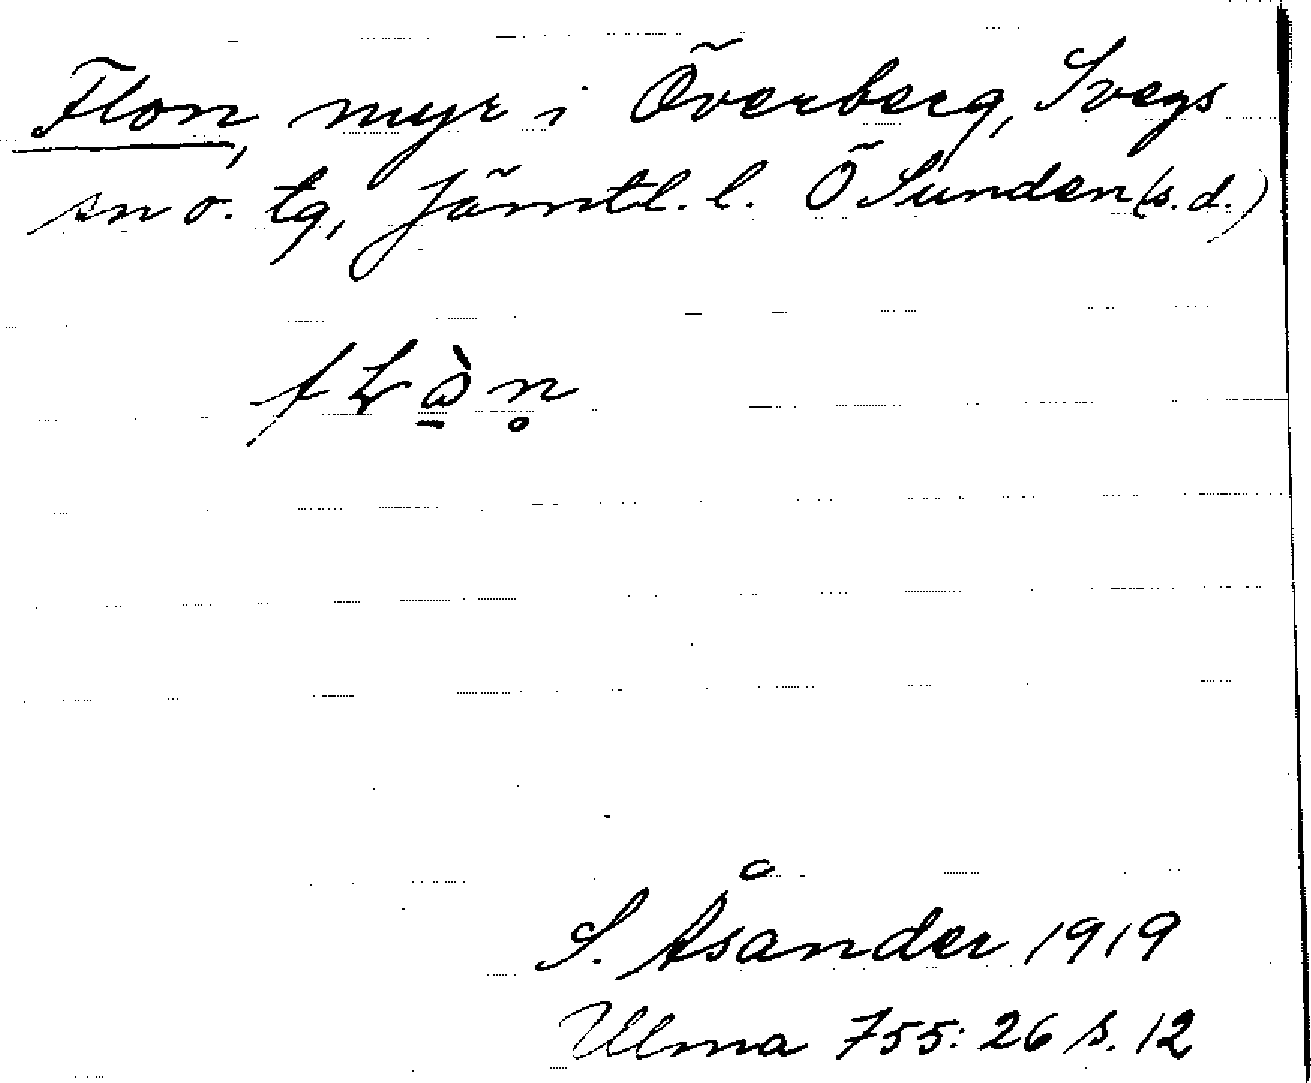 Flon, myr i Överberg, Svegs
sn o. tg, Jämtl. l. Ö Sunden (s. d.)
S. Åsander 1919
Ulma 755:26 s. 12